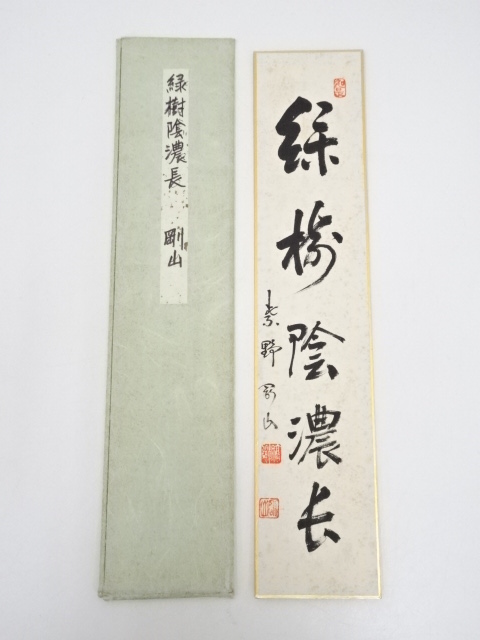 緑樹陰濃長
剛山
緑樹陰濃長
紫野剛山